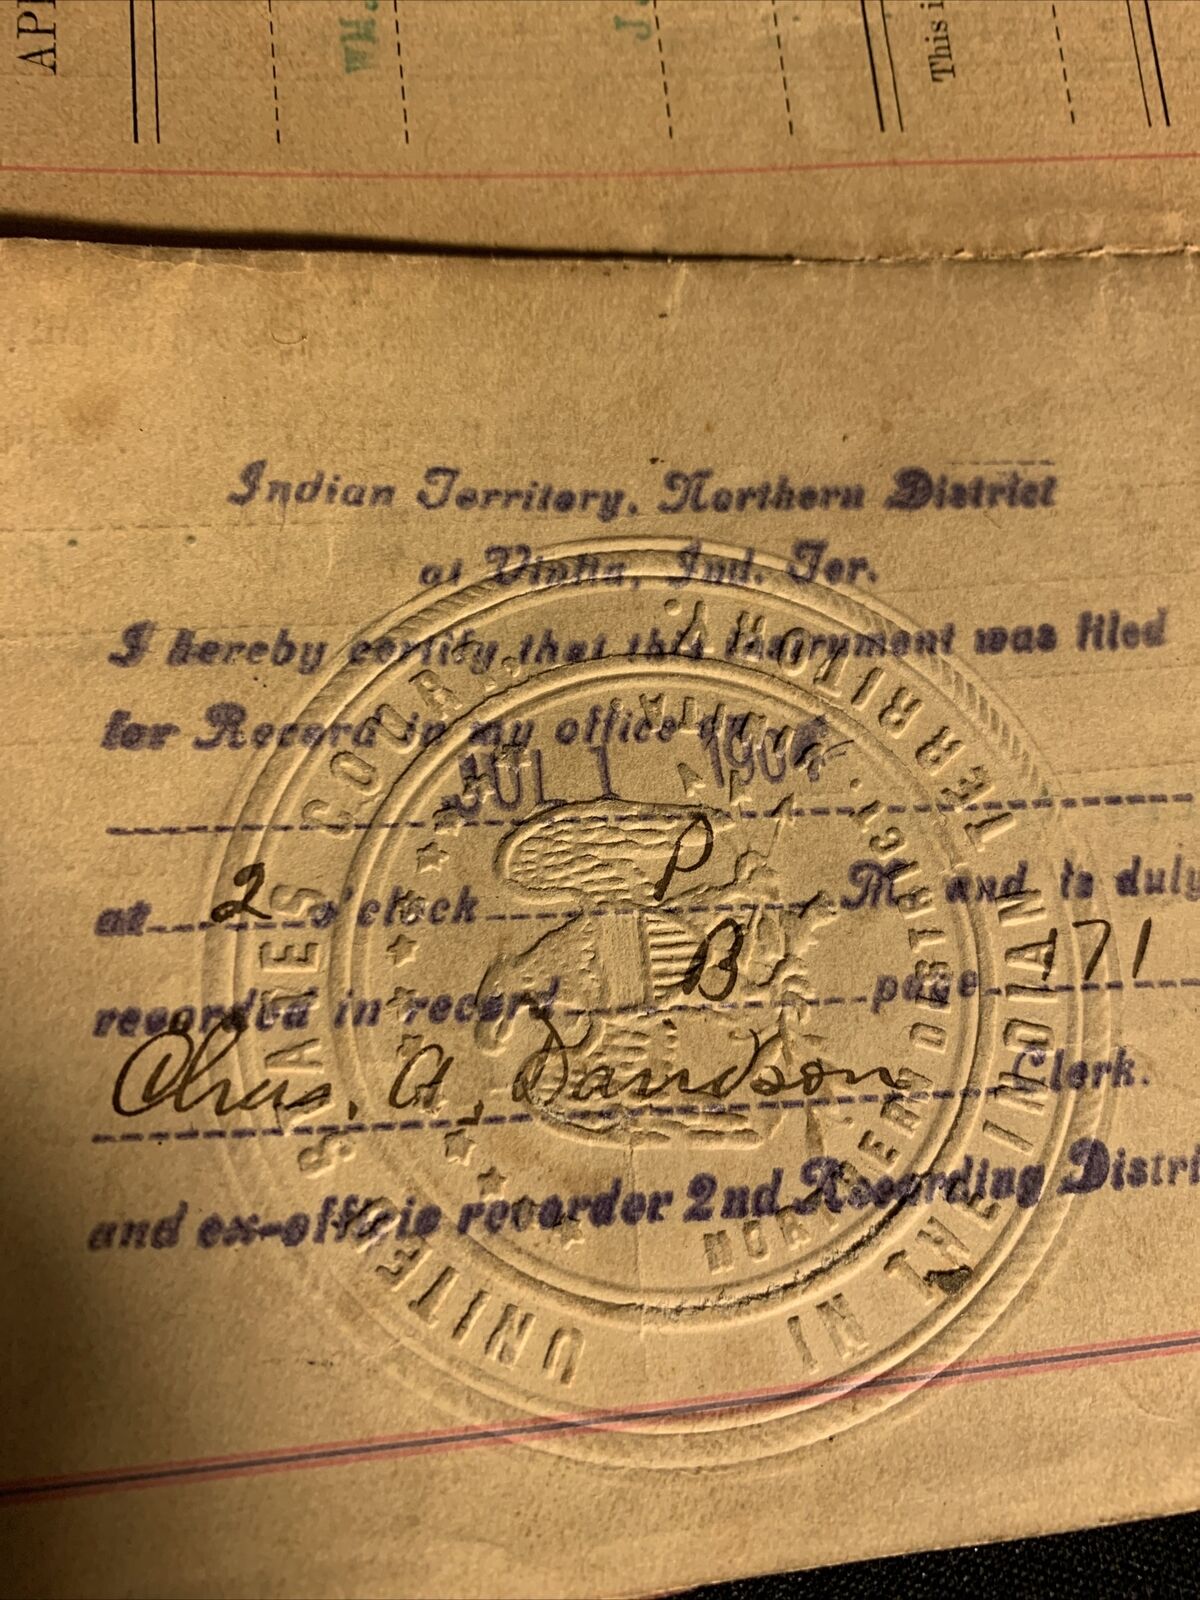 API
WM.
J
This i
Indian Territory, Northern District
at Vinita, Ind. Ter.
I hereby certify that this instrument was filed
for Record in my office on
JUL 1 190
at 2 o'clock P M. and is duly
recorded in record B page 171
Chas. A. Davidson Clerk.
and ex-officio recorder 2nd Recording Distri
UNITED STATES COURT. IN THE INDIAN TERRITORY.
NORTHERN DISTRICT. VINITA